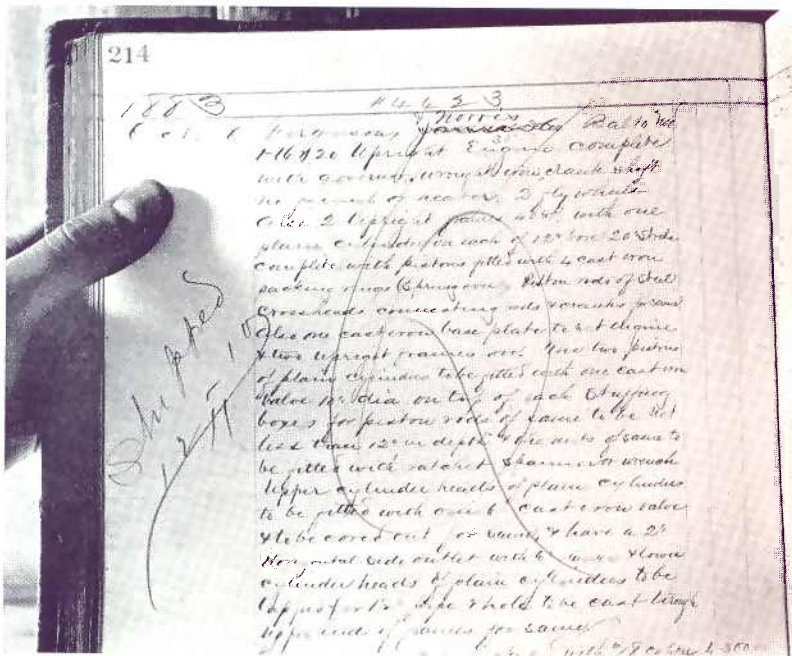 214
1883 #4423
Oct. 1 Fergusons & Norris Balto Md
1-16 x 20 Upright Engine complete
with governor, wrought iron, crank shaft
2 fly wheels
Also 2 Upright frames with one
plain cylinder on each of 12" bore 20" Stroke
complete with pistons fitted with 4 cast iron
packing rings (Spring Piston rods of Steel
Crossheads connecting rods & cranks for same
Also one cast iron base plate to set engine
& two upright frames on. The two pistons
of plain cylinders to be fitted with one cast iron
valve 10" dia on top of each Stuffing
boxes for piston rods of same to be not
less than 12" in depth & the nuts of same to
be fitted with ratchet & spanner wrench
Upper cylinder heads of plain cylinders
to be fitted with one 6" cast iron valve
& to be cored out for same & have a 2"
Horizontal side outlet with & lower
cylinder heads of plain cylinders to be
tapped for pipe & hole to be cast through
upper end of frames for same
Shipped
12